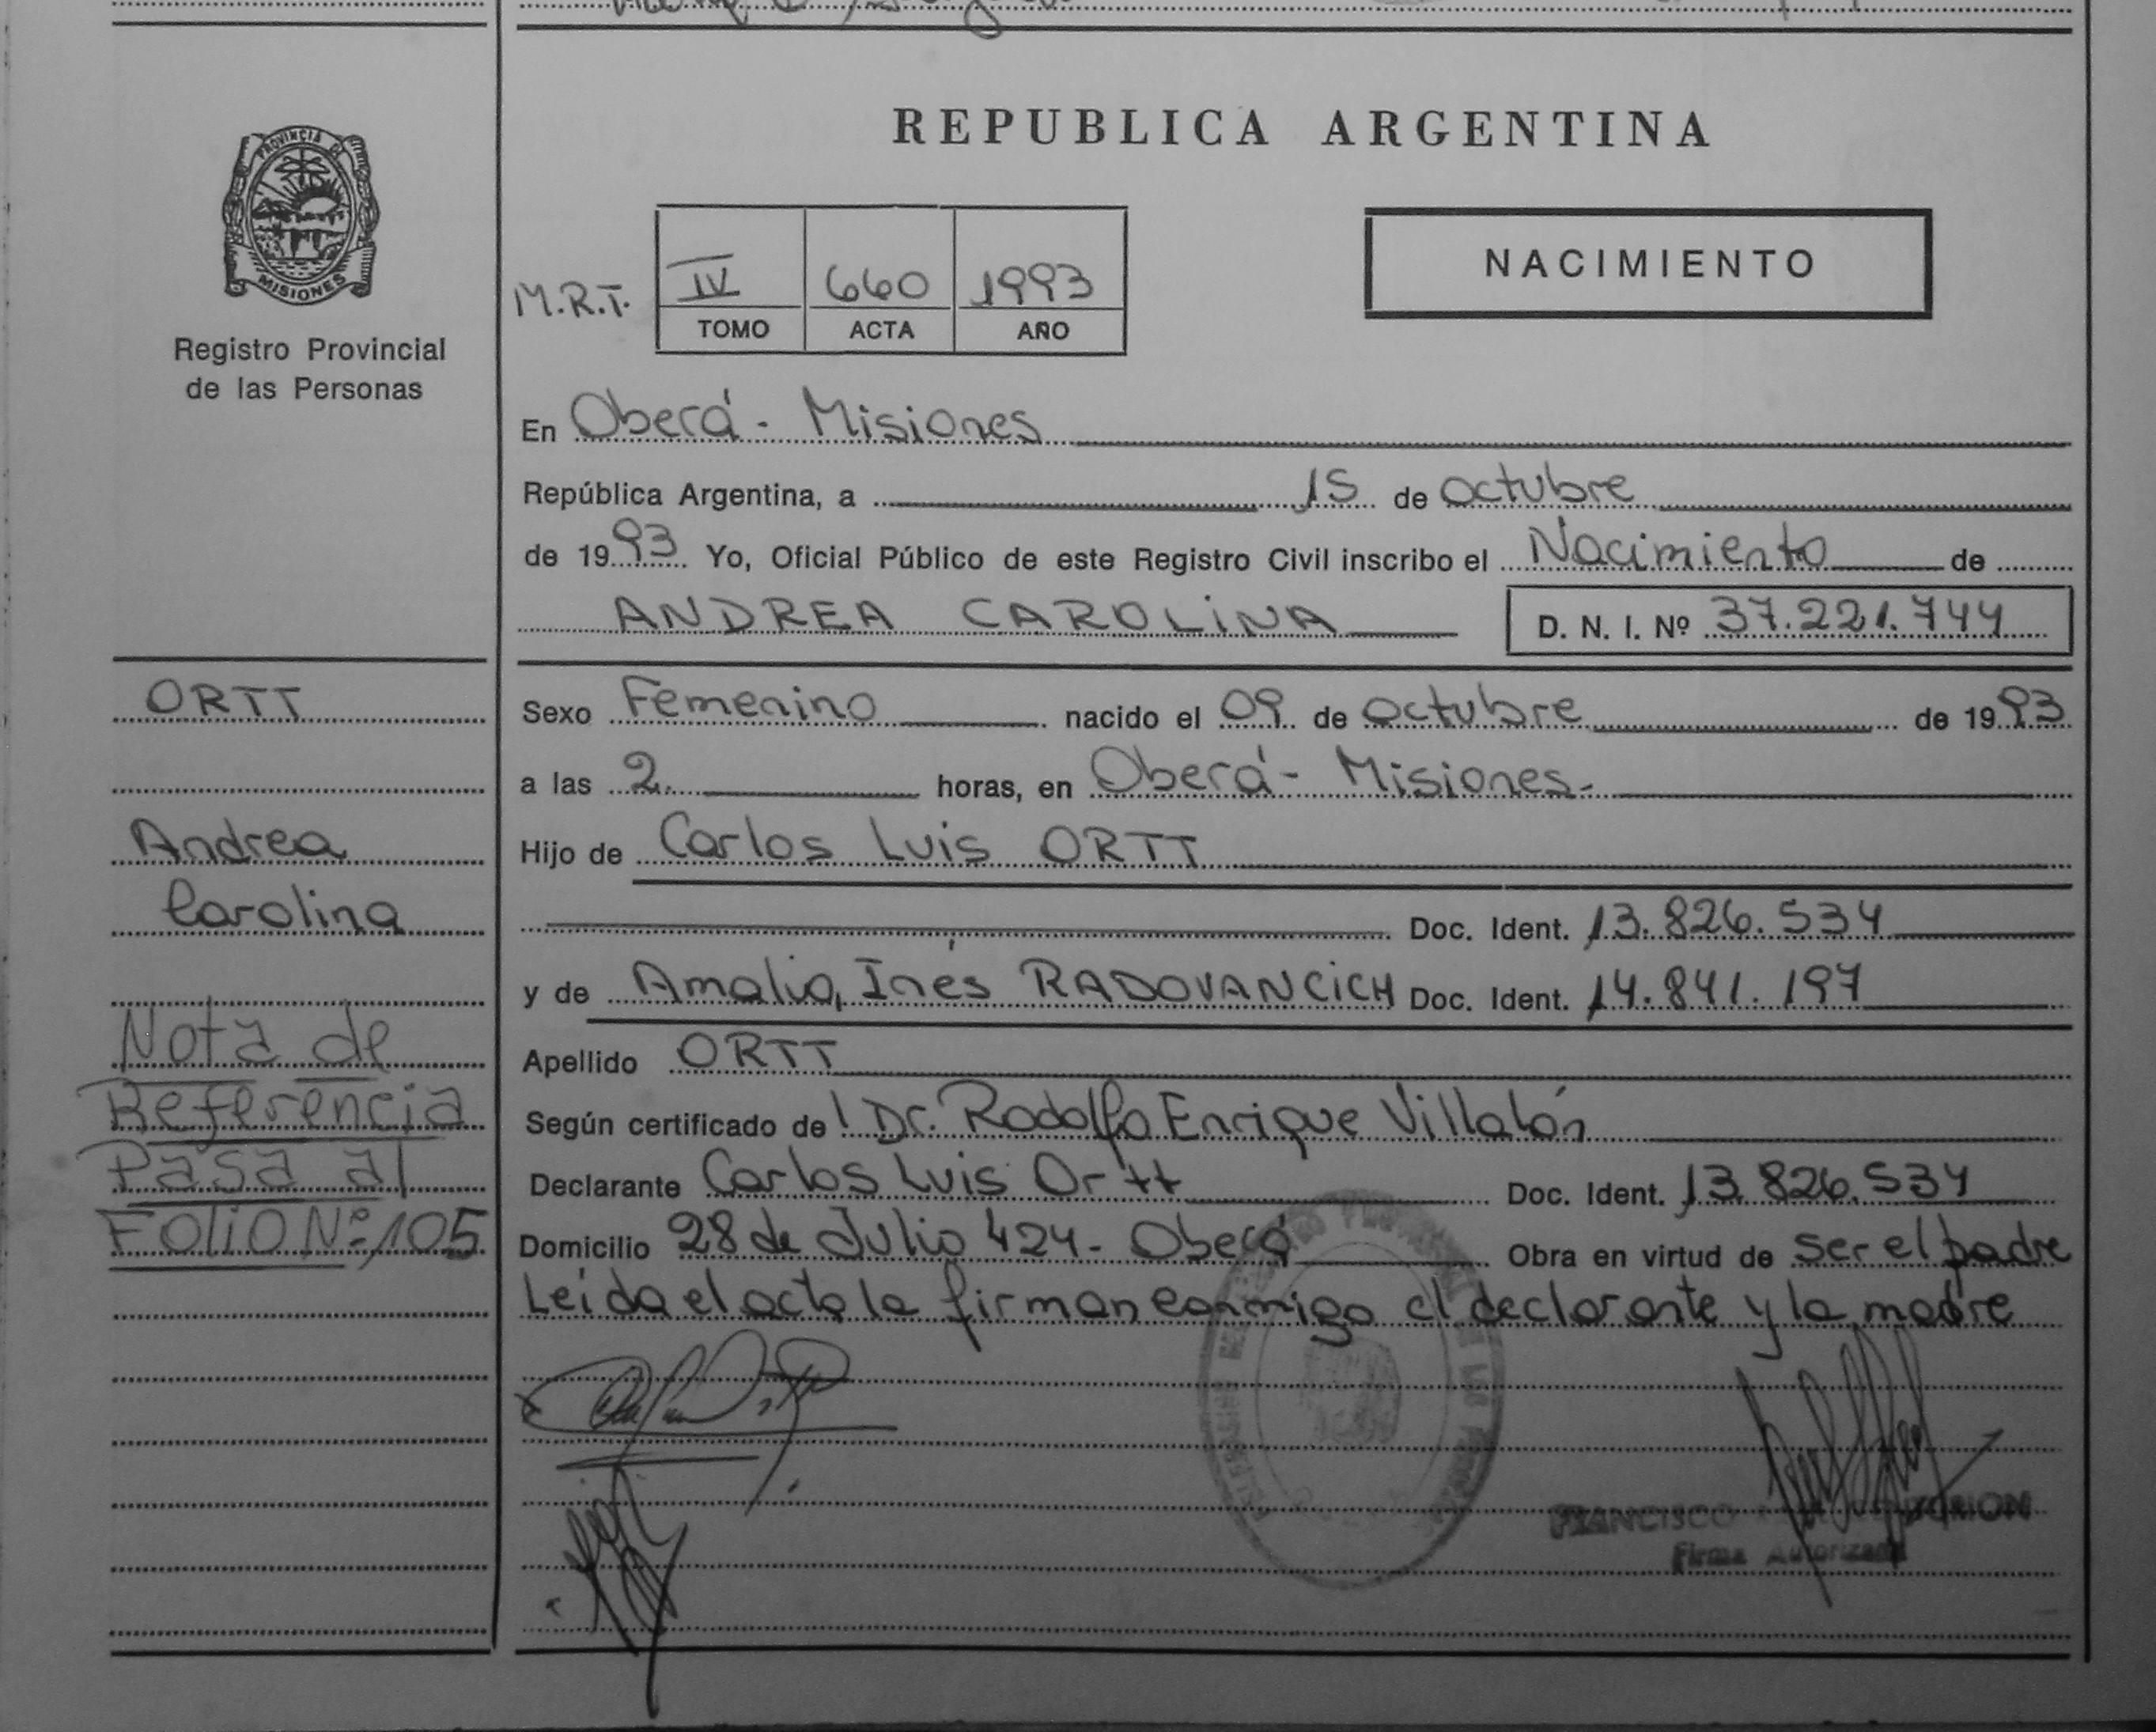 REPUBLICA ARGENTINA
PROVINCIA DE
MISIONES
Registro Provincial
de las Personas
NACIMIENTO
M.R.T. IV 660 1993
TOMO ACTA AÑO
En Oberá - Misiones
República Argentina, a 15 de octubre
de 1993 Yo, Oficial Público de este Registro Civil inscribo el Nacimiento de
ANDREA CAROLINA D. N. I. Nº 37.221.744
ORTT
Andrea
Carolina
Nota de
Referencia
Pasa al
FOLIO Nº 105
Sexo Femenino nacido el 09 de octubre de 1993
a las 2. horas, en Oberá - Misiones.-
Hijo de Carlos Luis ORTT
Doc. Ident. 13.826.534
y de Amalia, Inés RADOVANCICH Doc. Ident. 14.841.197
Apellido ORTT
Según certificado del Dr. Rodolfo Enrique Villalón
Declarante Carlos Luis Ortt Doc. Ident. 13.826.534
Domicilio 28 de Julio 424 - Oberá Obra en virtud de ser el padre
Leída el acta la firman conmigo el declarante y la madre
FRANCISCO
Firma Autorizada